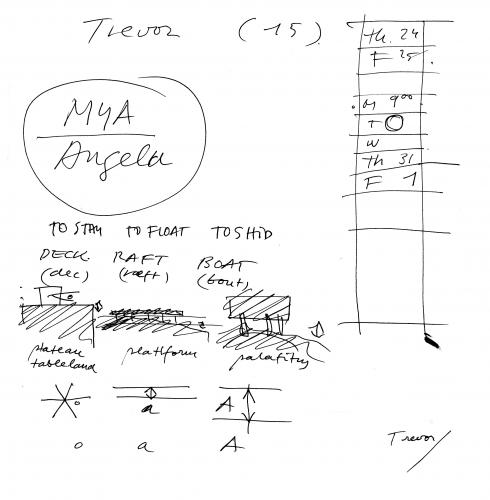 Trevor (15)
Th. 24
F 25
M 9⁰⁰
T
W
Th 31
F 1
MYA
Angela
TO STAY TO FLOAT TO SHID
DECK RAFT BOAT
(dec) (raft) (bout)
plateau platform palafitty
tableland
a A
o a A
Trevor